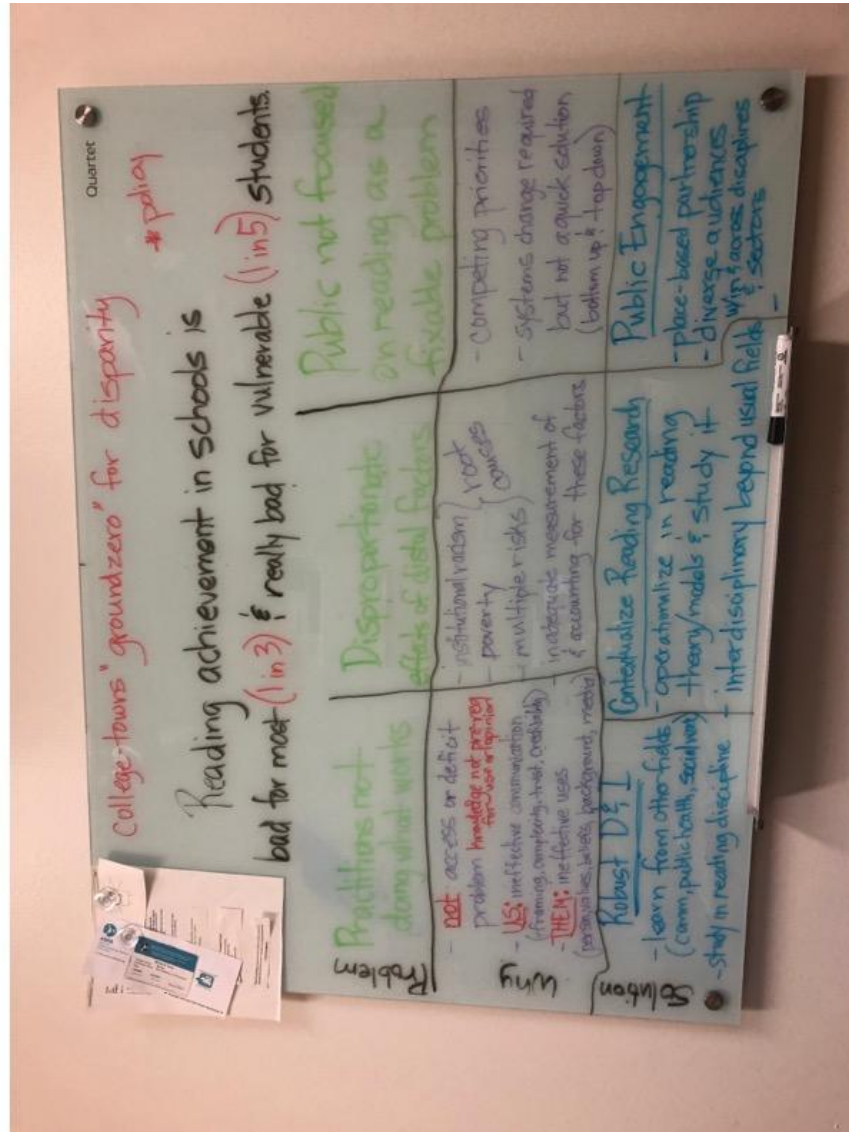 Quartet
College-towns "groundzero" for disparity
* policy
Reading achievement in schools is
bad for most (1 in 3) & really bad for vulnerable (1 in 5) students.
Problem
Practitions not
doing what works
Disproportionate
effects of distal factors
Public not focused
on reading as a
fixable problem
Why
- not access or deficit
problem knowledge not pre-req
for use or opinion
- US: ineffective communication
(framing, complexity, trust, credibility)
- THEM: ineffective uses
(personal values, beliefs, background, media)
- institutional racism
- poverty
- multiple risks
root
causes
- inadequate measurement of
& accounting for these factors
- competing priorities
- systems change required
but not a quick solution
(bottom up & top down)
Solution
Robust D & I
- learn from other fields
(comm, public health, sociology)
- study in reading discipline
Contextualize Reading Research
- operationalize in reading
theory/models & study it
- interdisciplinary beyond usual fields
Public Engagement
- place-based partnership
- diverse audiences
w/in & across disciplines
& sectors
-